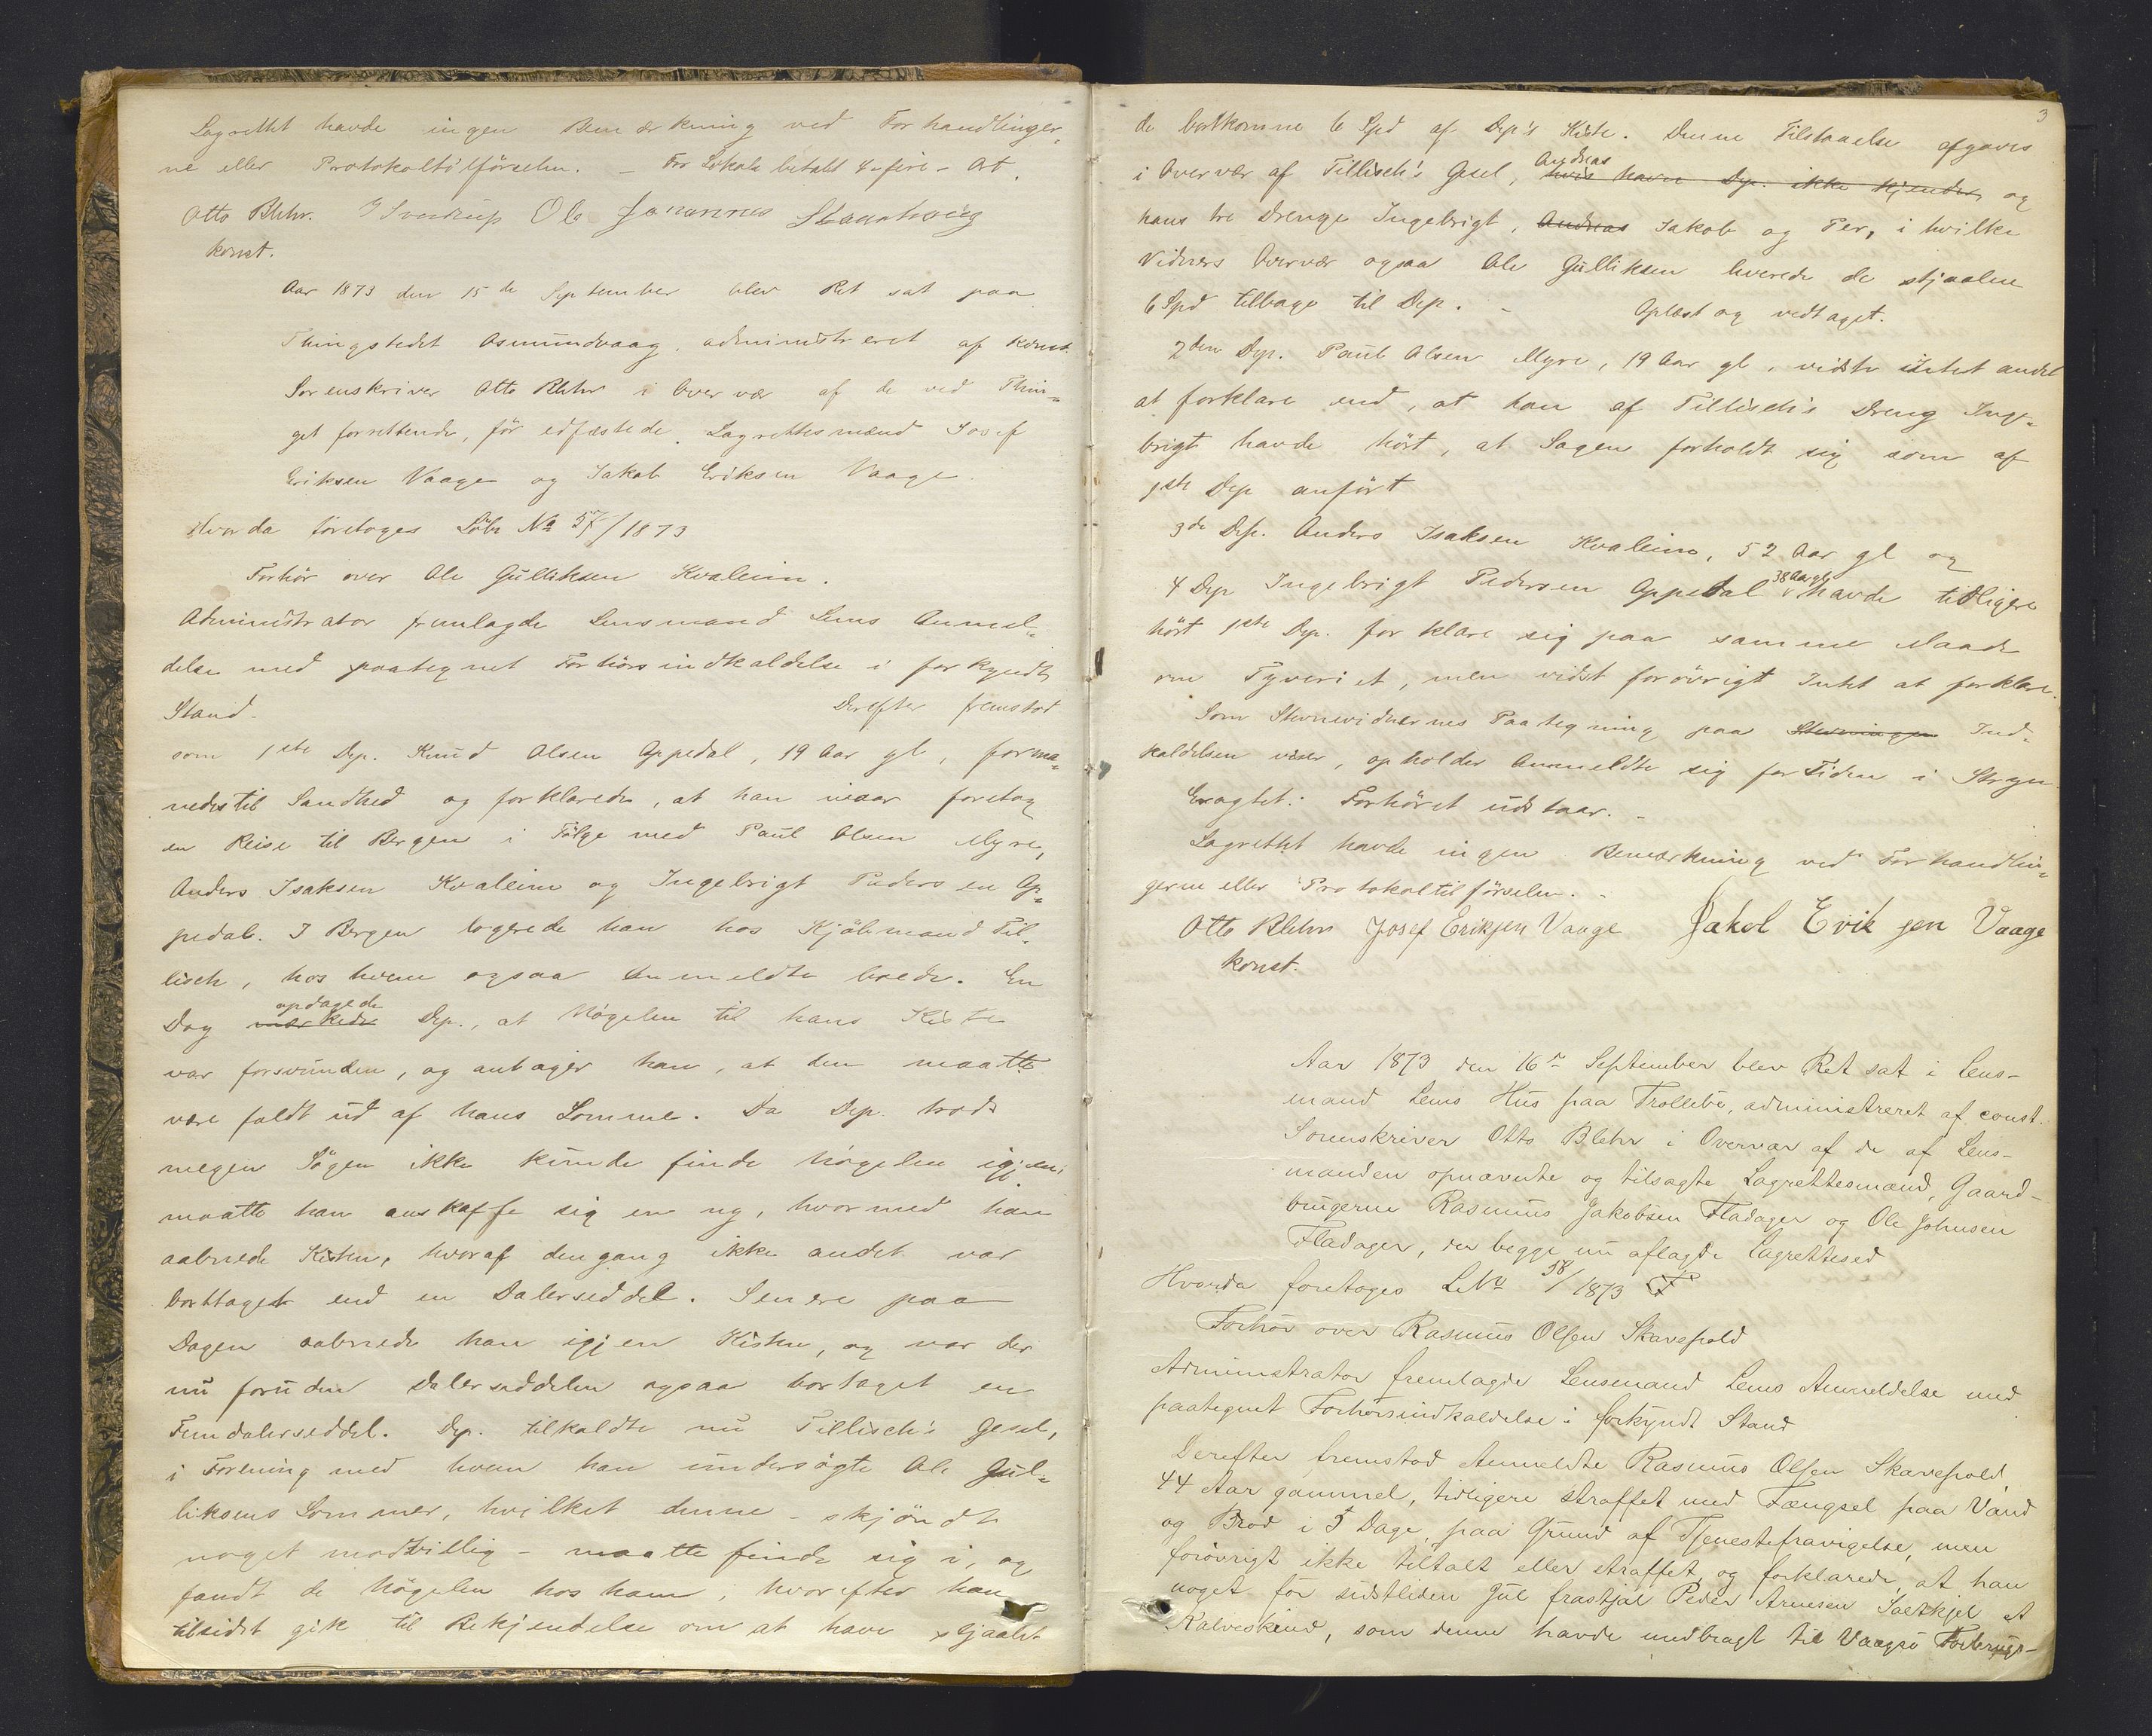 Lagrettet havde ingen Bemærkning ved Forhandlinger,
ne eller Protokoltilførselen. – For Lokale betalt 4 – fire – Ort.
Otto Blehr. Ole Johannes
konst.
Aar 1873 den 15de September blev Ret sat paa
Thingstedet Osmundvaag, administreret af konst.
Sorenskriver Otto Blehr i Overvær af de ved Thin=
get forrettende, før edfæstede Lagrettesmænd Josef
Eriksen Vaage og Jakob Eriksen Vaage.
Hvorda foretoges Løbe No 57/1873
Forhør over Ole Gulliksen Kvaleim.
Administrator fremlagde Lensmand Lems Anmel=
delse med paategnet Forhørsindkaldelse i forkyndt
Stand. Derefter fremstod
som 1ste Dep. Knud Olsen Oppedal, 19 Aar gl, forma=
nedes til Sandhed og forklarede, at han ivaar foretog
en Reise til Bergen i Følge med Paul Olsen Myre,
Anders Isaksen Kvaleim og Ingebrigt Pedersen Op=
pedal. I Bergen logerede han hos Kjøbmand Til=
lisch, hos hvem ogsaa Anmeldte boede. En
opdagede
Dag mærkede Dep., at Nøgelen til hans Kiste
var forsvunden, og antager han, at den maatte
være faldt ud af hans Lomme. Da Dep. trods
megen Søgen ikke kunde finde Nøgelen igjen,
maatte han anskaffe sig en ny, hvormed han
aabnede Kisten, hvoraf dengang ikke andet var
borttaget end en Dalerseddel. Senere paa
Dagen aabnede han igjen Kisten, og var der
nu foruden Dalerseddelen ogsaa bortaget en
Femdalerseddel. Dep. tilkaldte nu Tillisch's Gesel,
i Forening med hvem han undersøgte Ole Gul=
liksens Lommer, hvilket denne – skjøndt
noget modvillig – maatte finde sig i, og
fandt de Nøgelen hos ham, hvorefter han
tilsidst gik til Bekjendelse om at have stjaalet
3
de bortkomne 6 Spd af Dep's Kiste. Denne Tilstaaelse afgaves
Andreas
i Overvær af Tillisch's Gesel, hvis Navn Dep. ikke kjender, og
hans tre Drenge Ingebrigt, Andreas Jakob og Per, i hvilke
Vidners Overvær ogsaa Ole Gulliksen leverede de stjaalne
6 Spd tilbage til Dep. – Oplæst og vedtaget.
2den Dep. Paul Olsen Myre, 19 Aar gl, vidste intet andet
at forklare end, at han af Tillisch's Dreng Inge=
brigt havde hørt, at Sagen forholdt sig som af
1ste Dep anført
3de Dep. Anders Isaksen Kvaleim, 52 Aar gl og
38 Aar gl
4 Dep Ingebrigt Pedersen Oppedal havde tidligere
hørt 1ste Dep. forklare sig paa samme Maade
om Tyveriet, men vidst forøvrigt Intet at forklare.
Som Stevnevidnernes Paategning paa Stevningen Ind=
kaldelsen viser, opholder Anmeldte sig for Tiden i Stryn
Eragtet: Forhøret udstaar. –
Lagrettet havde ingen Bemærkning ved Forhandlin=
gerne eller Protokoltilførselen. –
Otto Blehr Josef Eriksen Vaage Jakob Erik sen Vaage
konst.
Aar 1873 den 16de September blev Ret sat i Lens-
mand Lems Hus paa Trollebø, administreret af const.
Sorenskriver Otto Blehr i Overvær af de af Lens-
manden opnævnte og tilsagte Lagrettesmænd, Gaard-
brugerne Rasmus Jakobsen Fladager og Ole Johnsen
Fladager, der begge nu aflagde Lagrettesed
Hvorda foretoges LNo 58/1873
Forhør over Rasmus Olsen Skavepold
Administrator fremlagde Lensmand Lems Anmeldelse med
paategnet Forhørsindkaldelse i forkyndt Stand
Derefter fremstod Anmeldte Rasmus Olsen Skavepold,
44 Aar gammel, tidligere straffet med Fængsel paa Vand
og Brød i 5 Dage, paa Grund af Tjenestefravigelse, men
forøvrigt ikke tiltalt eller straffet, og forklarede, at han
noget før sidstleden Jul frastjal Peder Arnesen et
Kalveskind, som denne havde medbragt til Vaagsø